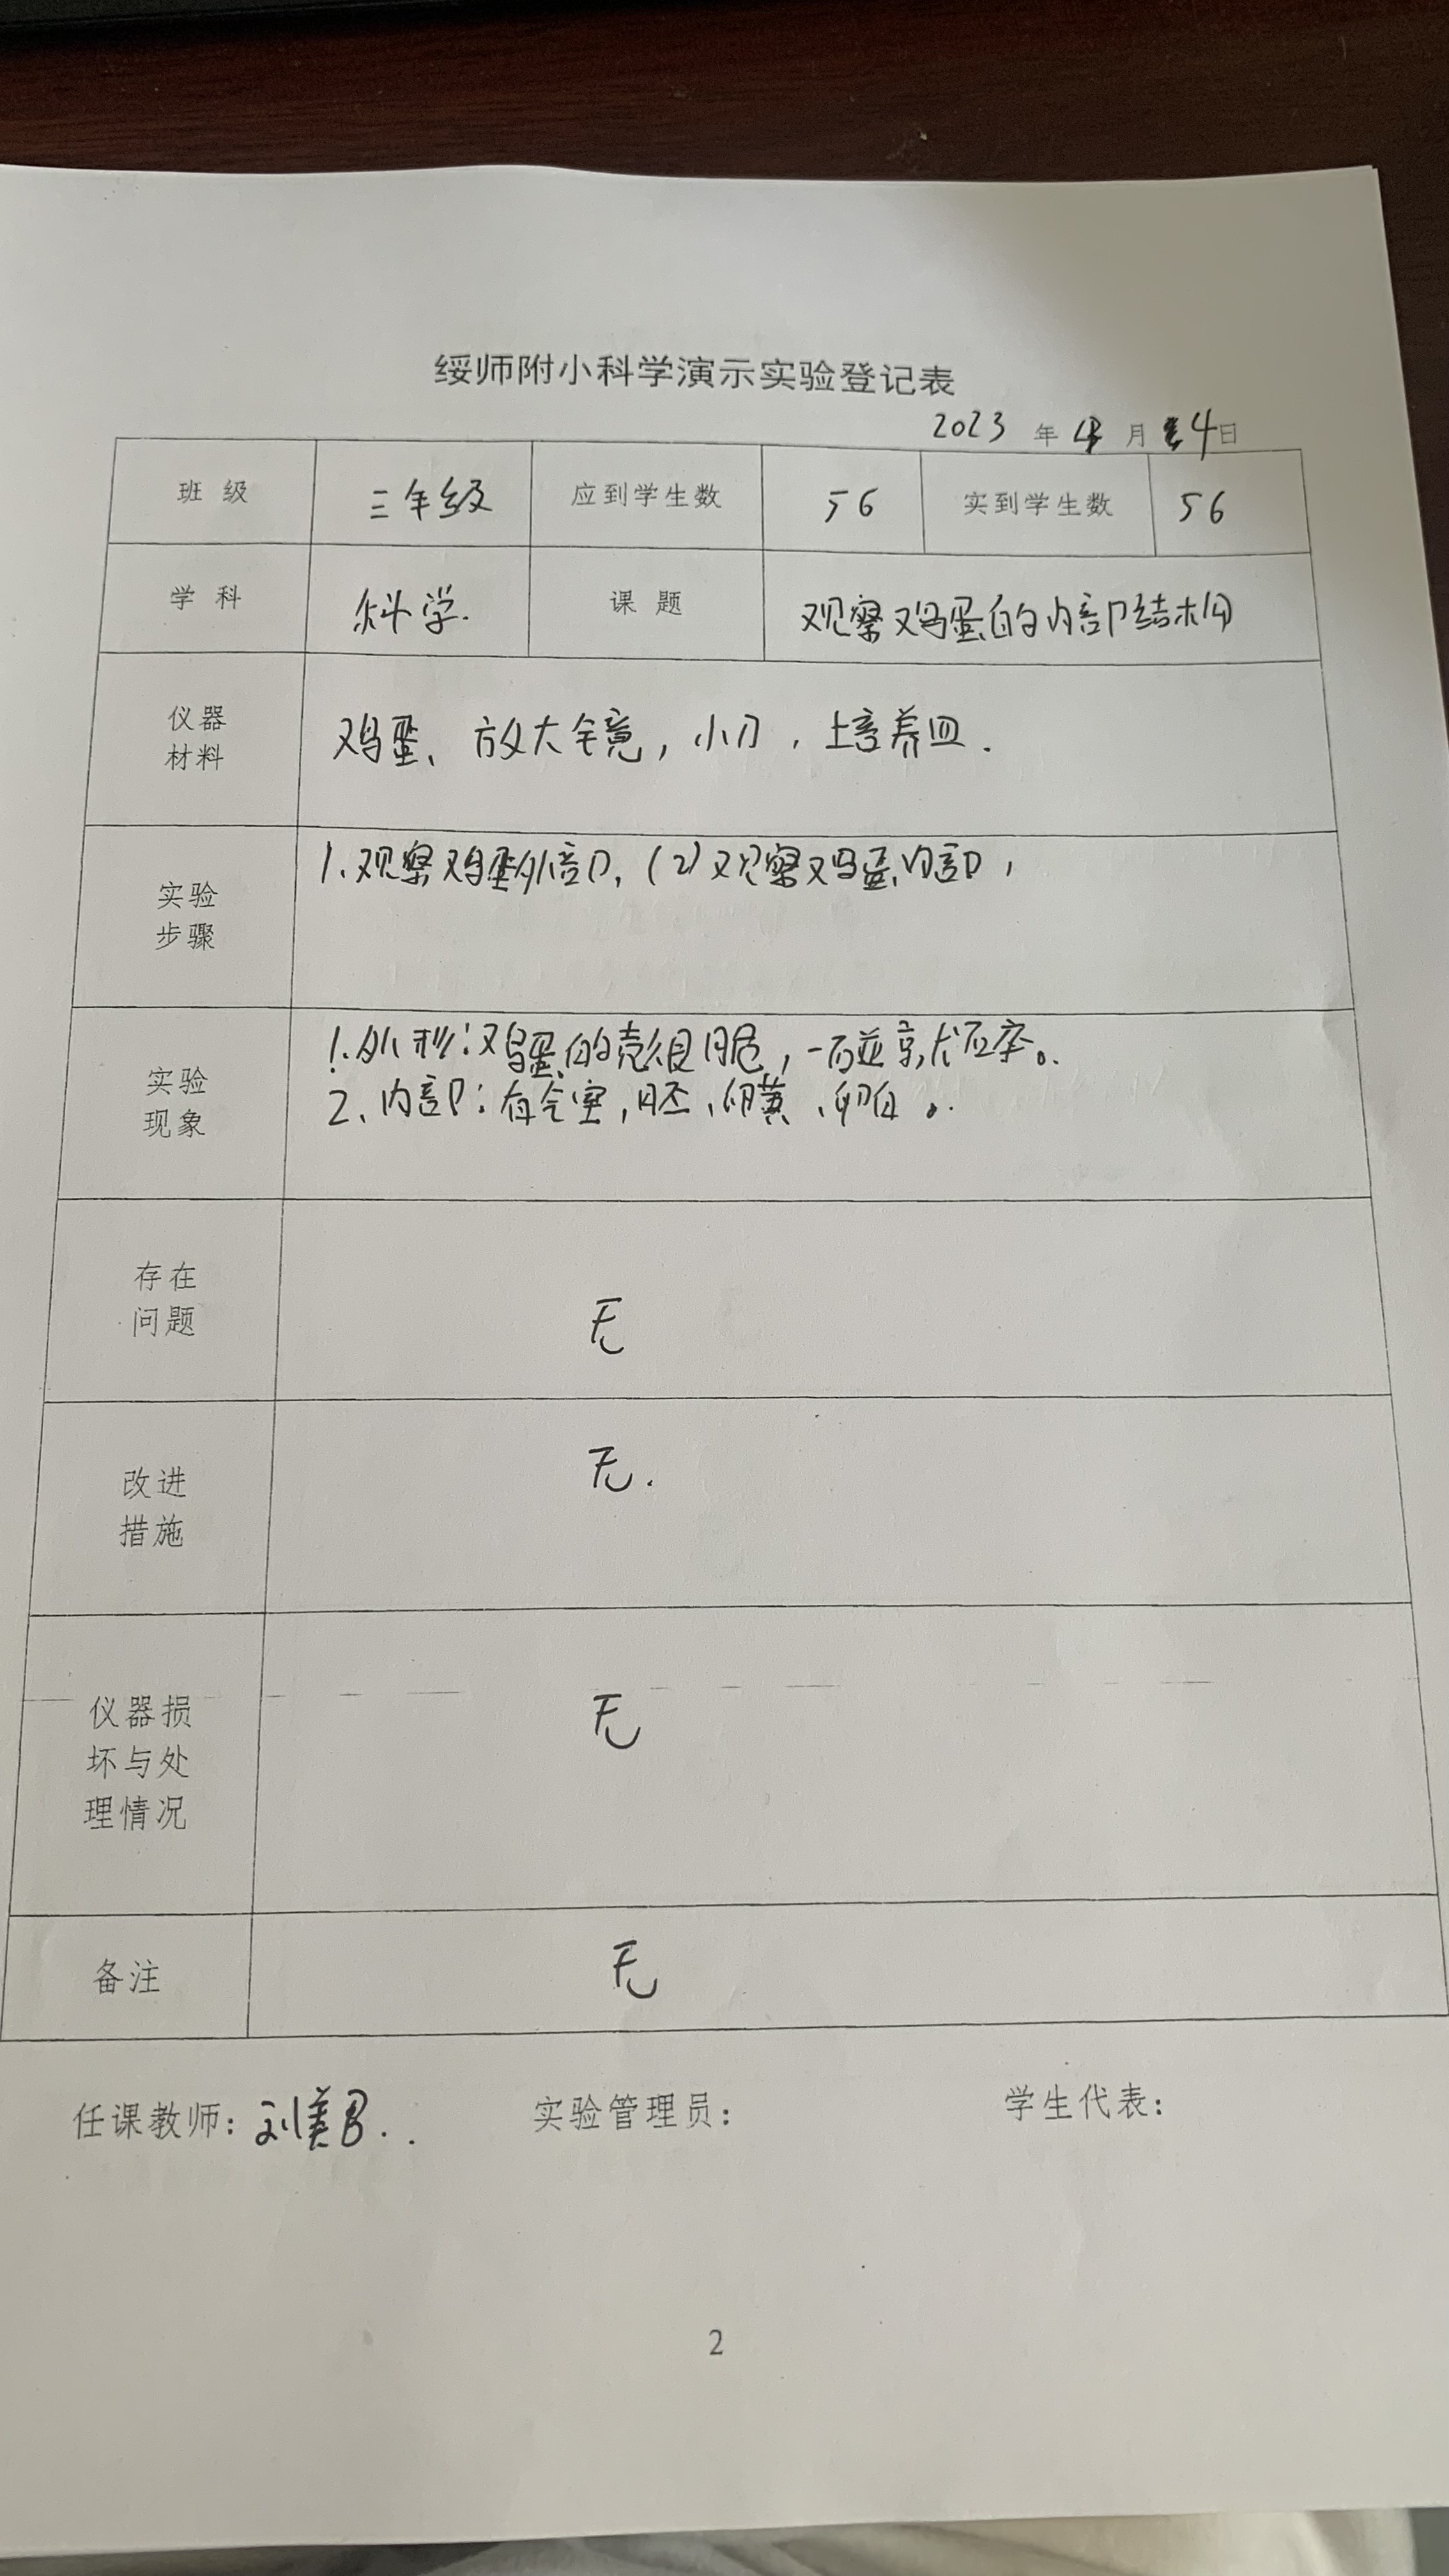 绥师附小科学演示实验登记表
2023 年 4 月 4日
班 级 三年级 应到学生数 56 实到学生数 56
学 科 科学. 课 题 观察鸡蛋的内部结构
仪器
材料
鸡蛋、放大镜,小刀,培养皿.
实验
步骤
1.观察鸡蛋外部,(2)观察鸡蛋内部,
实验
现象
1.外形:鸡蛋的壳很脆,一碰就碎。
2、内部:有气室,胚、卵黄、卵白。
存在
问题
无
改进
措施
无.
仪器损
坏与处
理情况
无
备注
无
任课教师: 刘美 实验管理员: 学生代表:
2